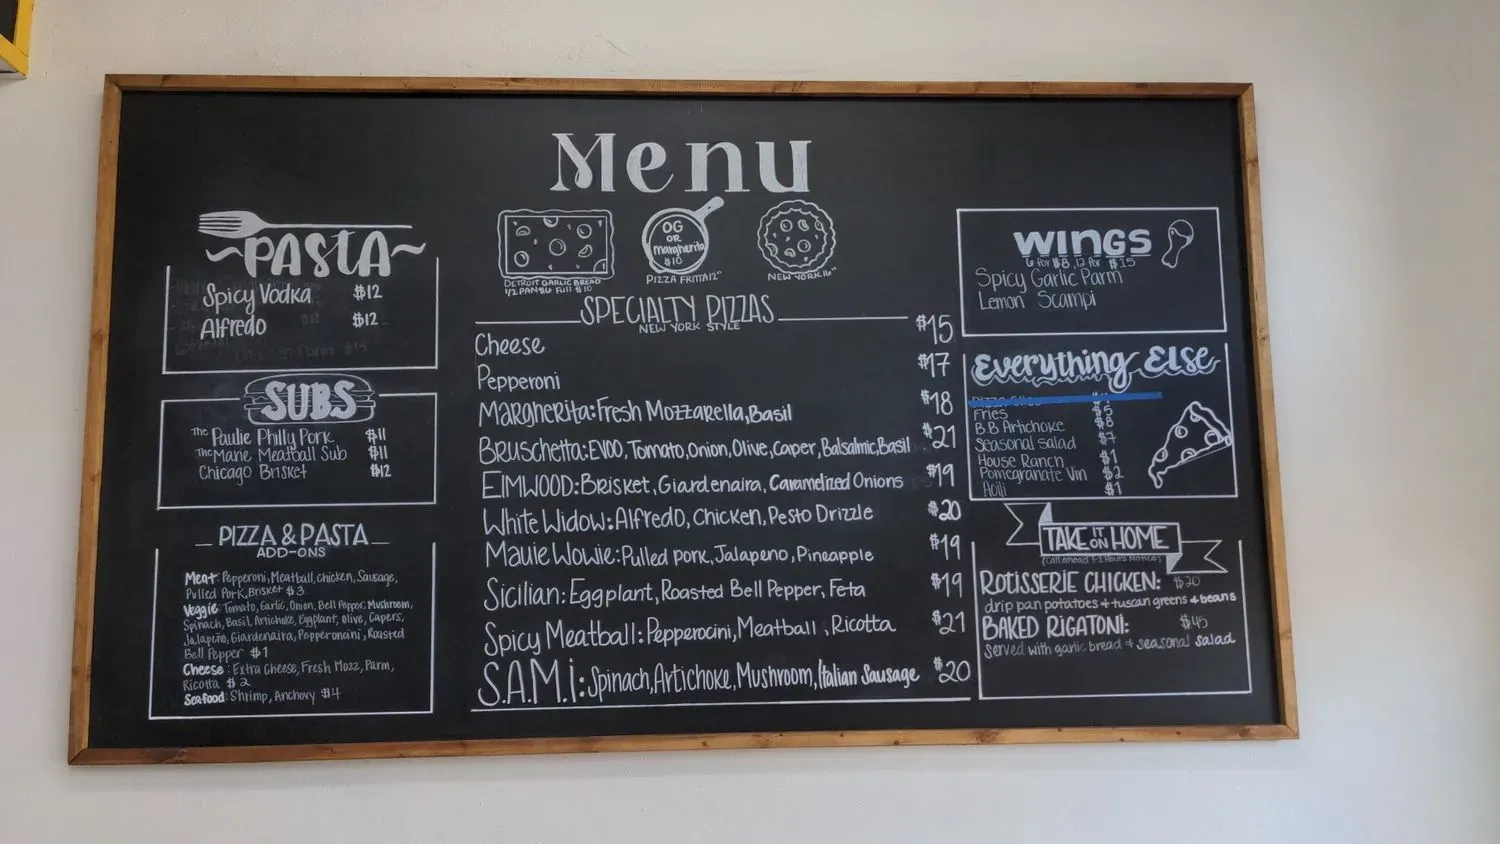 Menu
PASTA
Spicy Vodka $12
Alfredo $12
Chicken Parm $15
SUBS
The Paulie Philly Pork $11
The Marie Meatball Sub $11
Chicago Brisket $12
PIZZA & PASTA
ADD-ONS
Meat: Pepperoni, Meatball, Chicken, Sausage,
Pulled Pork, Brisket $3
Veggie: Tomato, Garlic, Onion, Bell Pepper, Mushroom,
Spinach, Basil, Artichoke, Eggplant, Olive, Capers,
Jalapeño, Giardenaira, Pepperoncini, Roasted
Bell Pepper $1
Cheese: Extra Cheese, Fresh Mozz, Parm,
Ricotta $2
Seafood: Shrimp, Anchovy $4
DETROIT GARLIC BREAD
1/2 PAN $6 Full $10
OG
OR
Margherita
$10
PIZZA FRITTA 12"
NEW YORK 16"
SPECIALTY PIZZAS
NEW YORK STYLE
Cheese $15
Pepperoni $17
Margherita: Fresh Mozzarella, Basil $18
Bruschetta: EVOO, Tomato, Onion, Olive, Caper, Balsalmic, Basil $21
ElMWOOD: Brisket, Giardenaira, Caramelized Onions $19
White Widow: Alfredo, Chicken, Pesto Drizzle $20
Mauie Wowie: Pulled pork, Jalapeno, Pineapple $19
Sicilian: Eggplant, Roasted Bell Pepper, Feta $19
Spicy Meatball: Pepperocini, Meatball, Ricotta $21
S.A.M.i: Spinach, Artichoke, Mushroom, Italian Sausage $20
WINGS
6 for $8, 12 for $15
Spicy Garlic Parm
Lemon Scampi
Everything Else
Fries $5
B.B Artichoke $8
Seasonal Salad $7
House Ranch $1
Pomegranate Vin $2
Aoili $1
TAKE IT ON HOME
(Call ahead 1-2 Hours Notice)
ROTISSERIE CHICKEN: $20
drip pan potatoes + tuscan greens + beans
BAKED RIGATONI: $45
served with garlic bread + seasonal salad